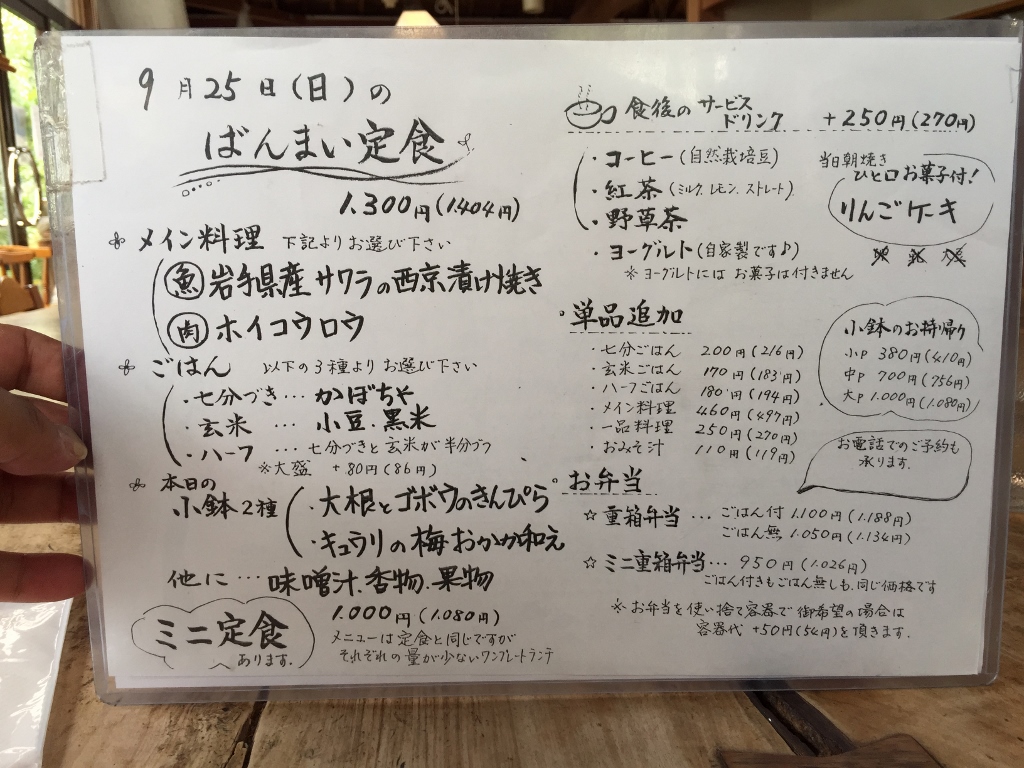 9月25日(日)の
ばんまい定食
1.300円(1.404円)
メイン料理 下記よりお選び下さい
魚 岩手県産サワラの西京漬け焼き
肉 ホイコウロウ
ごはん 以下の3種よりお選び下さい
・七分づき… かぼちゃ
・玄米 … 小豆.黒米
・ハーフ … 七分づきと玄米が半分づつ
※大盛 +80円(86円)
本日の
小鉢2種
・大根とゴボウのきんぴら
・キュウリの梅おかか和え
他に… 味噌汁.香物.果物
ミニ定食
あります.
1.000円(1.080円)
メニューは定食と同じですが
それぞれの量が少ないワンプレートランチ
食後のサービス
ドリンク
+250円(270円)
・コーヒー(自然栽培豆)
・紅茶(ミルク.レモン.ストレート)
・野草茶
・ヨーグルト(自家製です♪)
※ヨーグルトには お菓子は付きません
当日朝焼き
ひと口お菓子付!
りんごケーキ
・単品追加
・七分ごはん 200円(216円)
・玄米ごはん 170円(183円)
・ハーフごはん 180円(194円)
・メイン料理 460円(497円)
・一品料理 250円(270円)
・おみそ汁 110円(119円)
小鉢のお持帰り
小P 380円(410円)
中P 700円(756円)
大P 1.000円(1.080円)
お電話でのご予約も
承ります.
・お弁当
☆ 重箱弁当 … ごはん付 1.100円(1.188円)
ごはん無 1.050円(1.134円)
☆ ミニ重箱弁当… 950円(1.026円)
ごはん付きもごはん無しも.同じ価格です
※お弁当を使い捨て容器で御希望の場合は
容器代 +50円(54円)を頂きます.